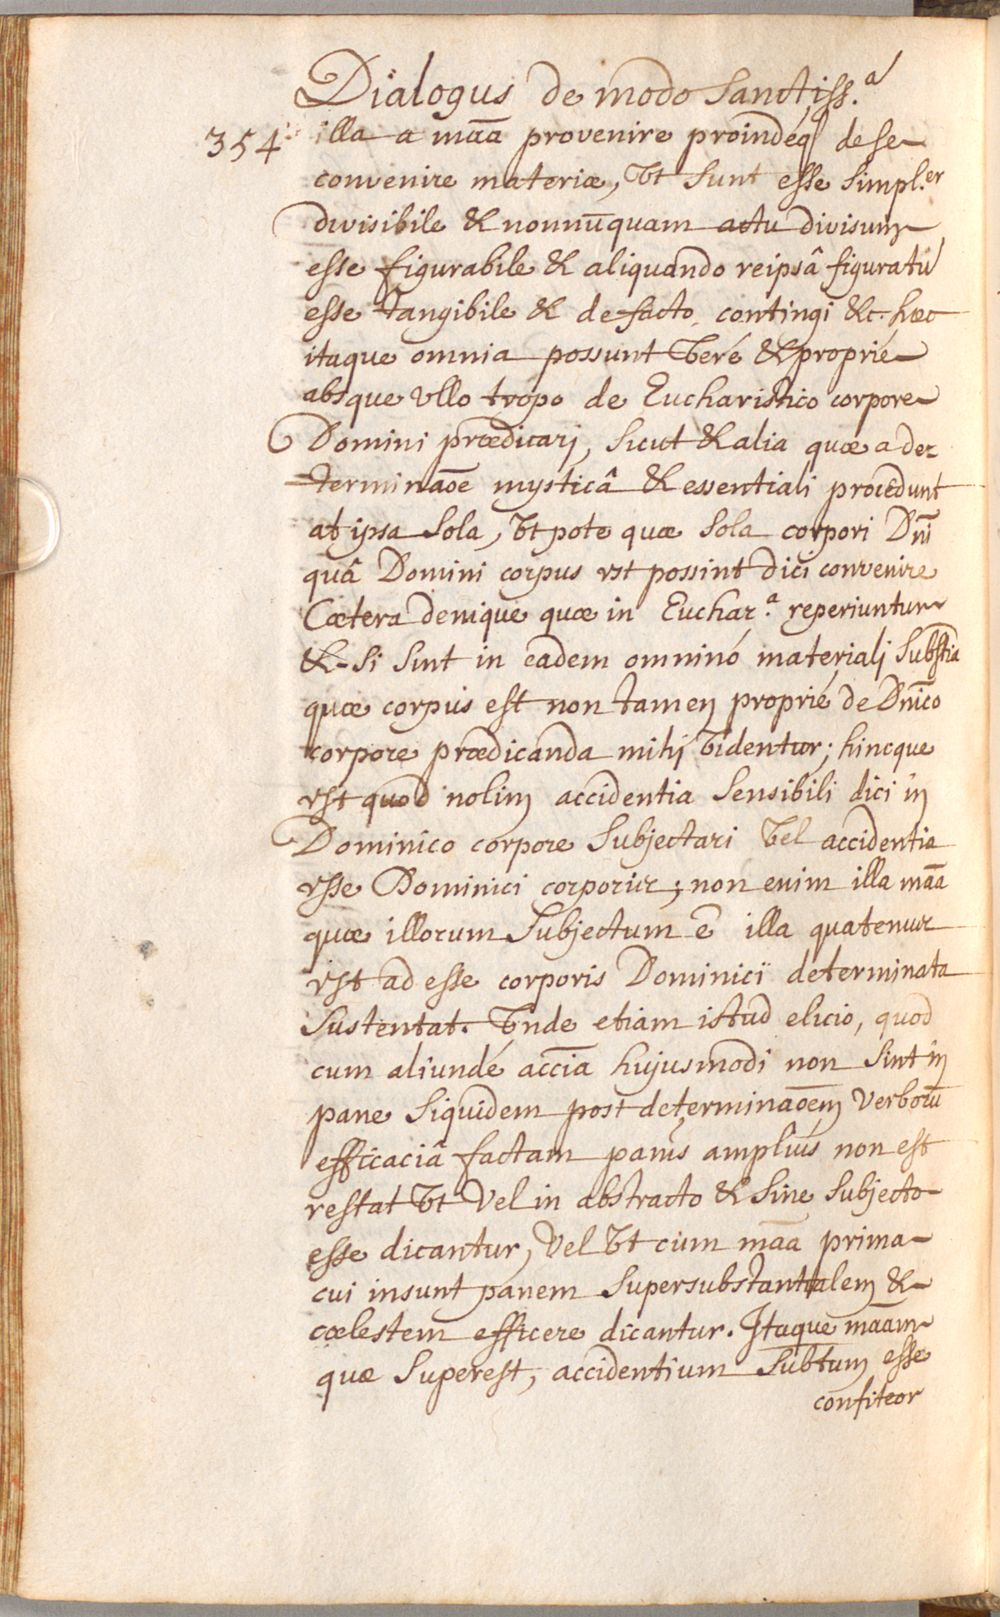 Dialogus de modo Sanctiss.ª
354 illa a maā provenire proindéq de se
convenire materiæ, Ut sunt esse simpl.er
divisibile & nonnūquam actu divisum
esse figurabile & aliquando reipsâ figuratū
esse tangibile & de facto contingi &c. hæc
itaque omnia possunt Veré & proprié
absque Ullo tropo de Eucharistico corpore
Domini prædicarj, sicut & alia quæ a de=
=terminaōe mysticâ & essentiali procedunt
ab ipsa sola, Ut pote quæ sola corpori Dnī
quâ Domini corpus est possint dici convenire
Cætera denique quæ in Euchar.ª reperiuntur
&-si sint in eadem omninó materialj substīa
quæ corpus est non tamen proprié de Dnīco
corpore prædicanda mihj Videntur; hincque
est quod nolim accidentia sensibili dici in
Dominico corpore subjectari Vel accidentia
esse Dominici corporis; non enim illa maā
quæ illorum subjectum ē illa quatenus
est ad esse corporis Dominici determinata
sustentat. Unde etiam istud elicio, quod
cum aliundé accīa hujusmodi non sint in
pane siquidem post determinaōem Verborū
efficaciâ factam panis ampliùs non est
restat Ut Vel in abstracto & sine subjecto
esse dicantur, Vel Ut cum maā prima
cui insunt panem supersubstantialem &
cœlestem efficere dicantur. Itaque maām
quæ superest, accidentium subtum esse
confiteor